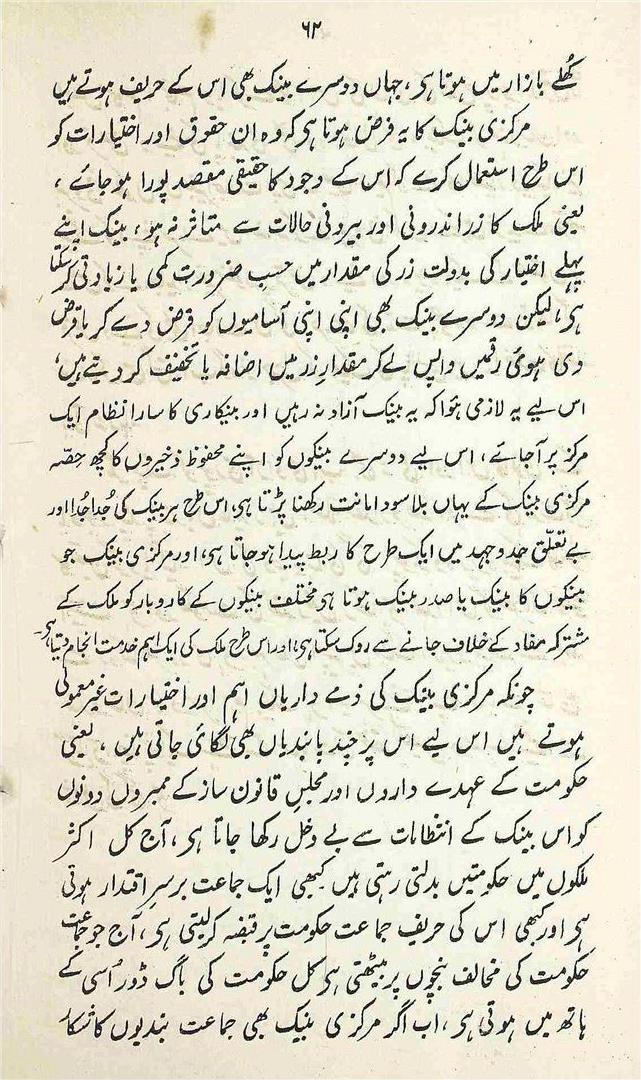 ۶۲
کُھلے بازار میں ہوتا ہی، جہاں دوسرے بینک بھی اس کے حریف ہوتے ہیں
مرکزی بینک کا یہ فرض ہوتا ہی کہ وہ ان حقوق اور اختیارات کو
اس طرح استعمال کرے کہ اس کے وجود کا حقیقی مقصد پورا ہو جائے ،
یعنی ملک کا زر اندرونی اور بیرونی حالات سے متاثر نہ ہو ، بینک اپنے
پہلے اختیار کی بدولت زر کی مقدار میں حسبِ ضرورت کمی یا زیادتی کر سکتا
ہی، لیکن دوسرے بینک بھی اپنی اپنی آسامیوں کو قرض دے کر یا قرض
دی ہوئی رقمیں واپس لے کر مقدارِ زر میں اضافہ یا تخفیف کر دیتے ہیں،
اس لیے یہ لازمی ہُوا کہ یہ بینک آزاد نہ رہیں اور بینکاری کا سارا نظام ایک
مرکز پر آ جائے ، اس لیے دوسرے بینکوں کو اپنے محفوظ ذخیروں کا کچھ حصّہ
مرکزی بینک کے یہاں بلا سود امانت رکھنا پڑتا ہی، اس طرح ہر بینک کی جُدا جُدا اور
بے تعلّق جد و جہد میں ایک طرح کا ربط پیدا ہو جاتا ہی، اور مرکزی بینک جو
بینکوں کا بینک یا صدر بینک ہوتا ہی مختلف بینکوں کے کاروبار کو ملک کے
مشترکہ مفاد کے خلاف جانے سے روک سکتا ہی، اور اس طرح ملک کی ایک اہم خدمت انجام دیتا ہی۔
چونکہ مرکزی بینک کی ذمے داریاں اہم اور اختیارات غیر معمولی
ہوتے ہیں اس لیے اس پر چند پابندیاں بھی لگائی جاتی ہیں ، یعنی
حکومت کے عہدے داروں اور مجلسِ قانون ساز کے ممبروں دونوں
کو اس بینک کے انتظامات سے بے دخل رکھا جاتا ہی ، آج کل اکثر
ملکوں میں حکومتیں بدلتی رہتی ہیں کبھی ایک جماعت برسرِ اقتدار ہوتی
ہی اور کبھی اس کی حریف جماعت حکومت پر قبضہ کر لیتی ہی ، آج جو جماعت
حکومت کی مخالف بنچوں پر بیٹھتی ہی کل حکومت کی باگ ڈور اُسی کے
ہاتھ میں ہوتی ہی ، اب اگر مرکزی بینک بھی جماعت بندیوں کا شکار